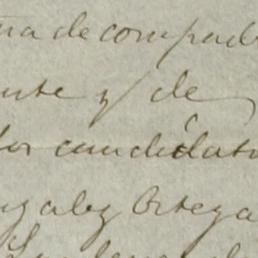 de compad
ente y de
los candidato
nzalez Ortega